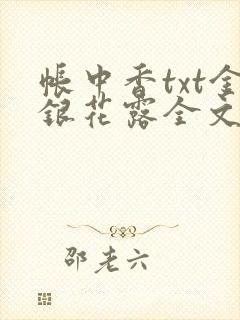 帐中香txt金
银花露全文
邵老六